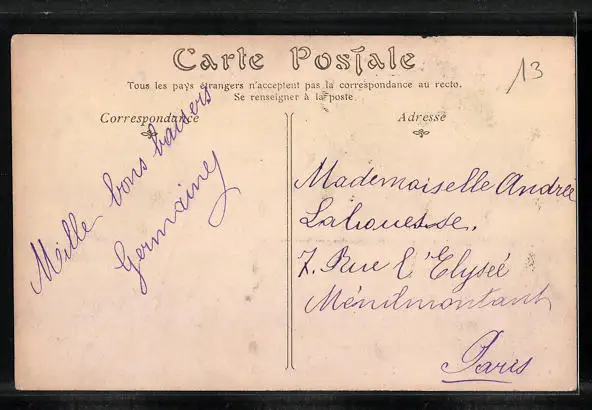 Carte Postale
Tous les pays étrangers n'acceptent pas la correspondance au recto.
Se renseigner à la poste.
Correspondance
Adresse
13
Mille bons baisers
Germaine
Mademoiselle Andrée
Lahouesse.
7. Rue l'Elysée
Ménilmontant
Paris